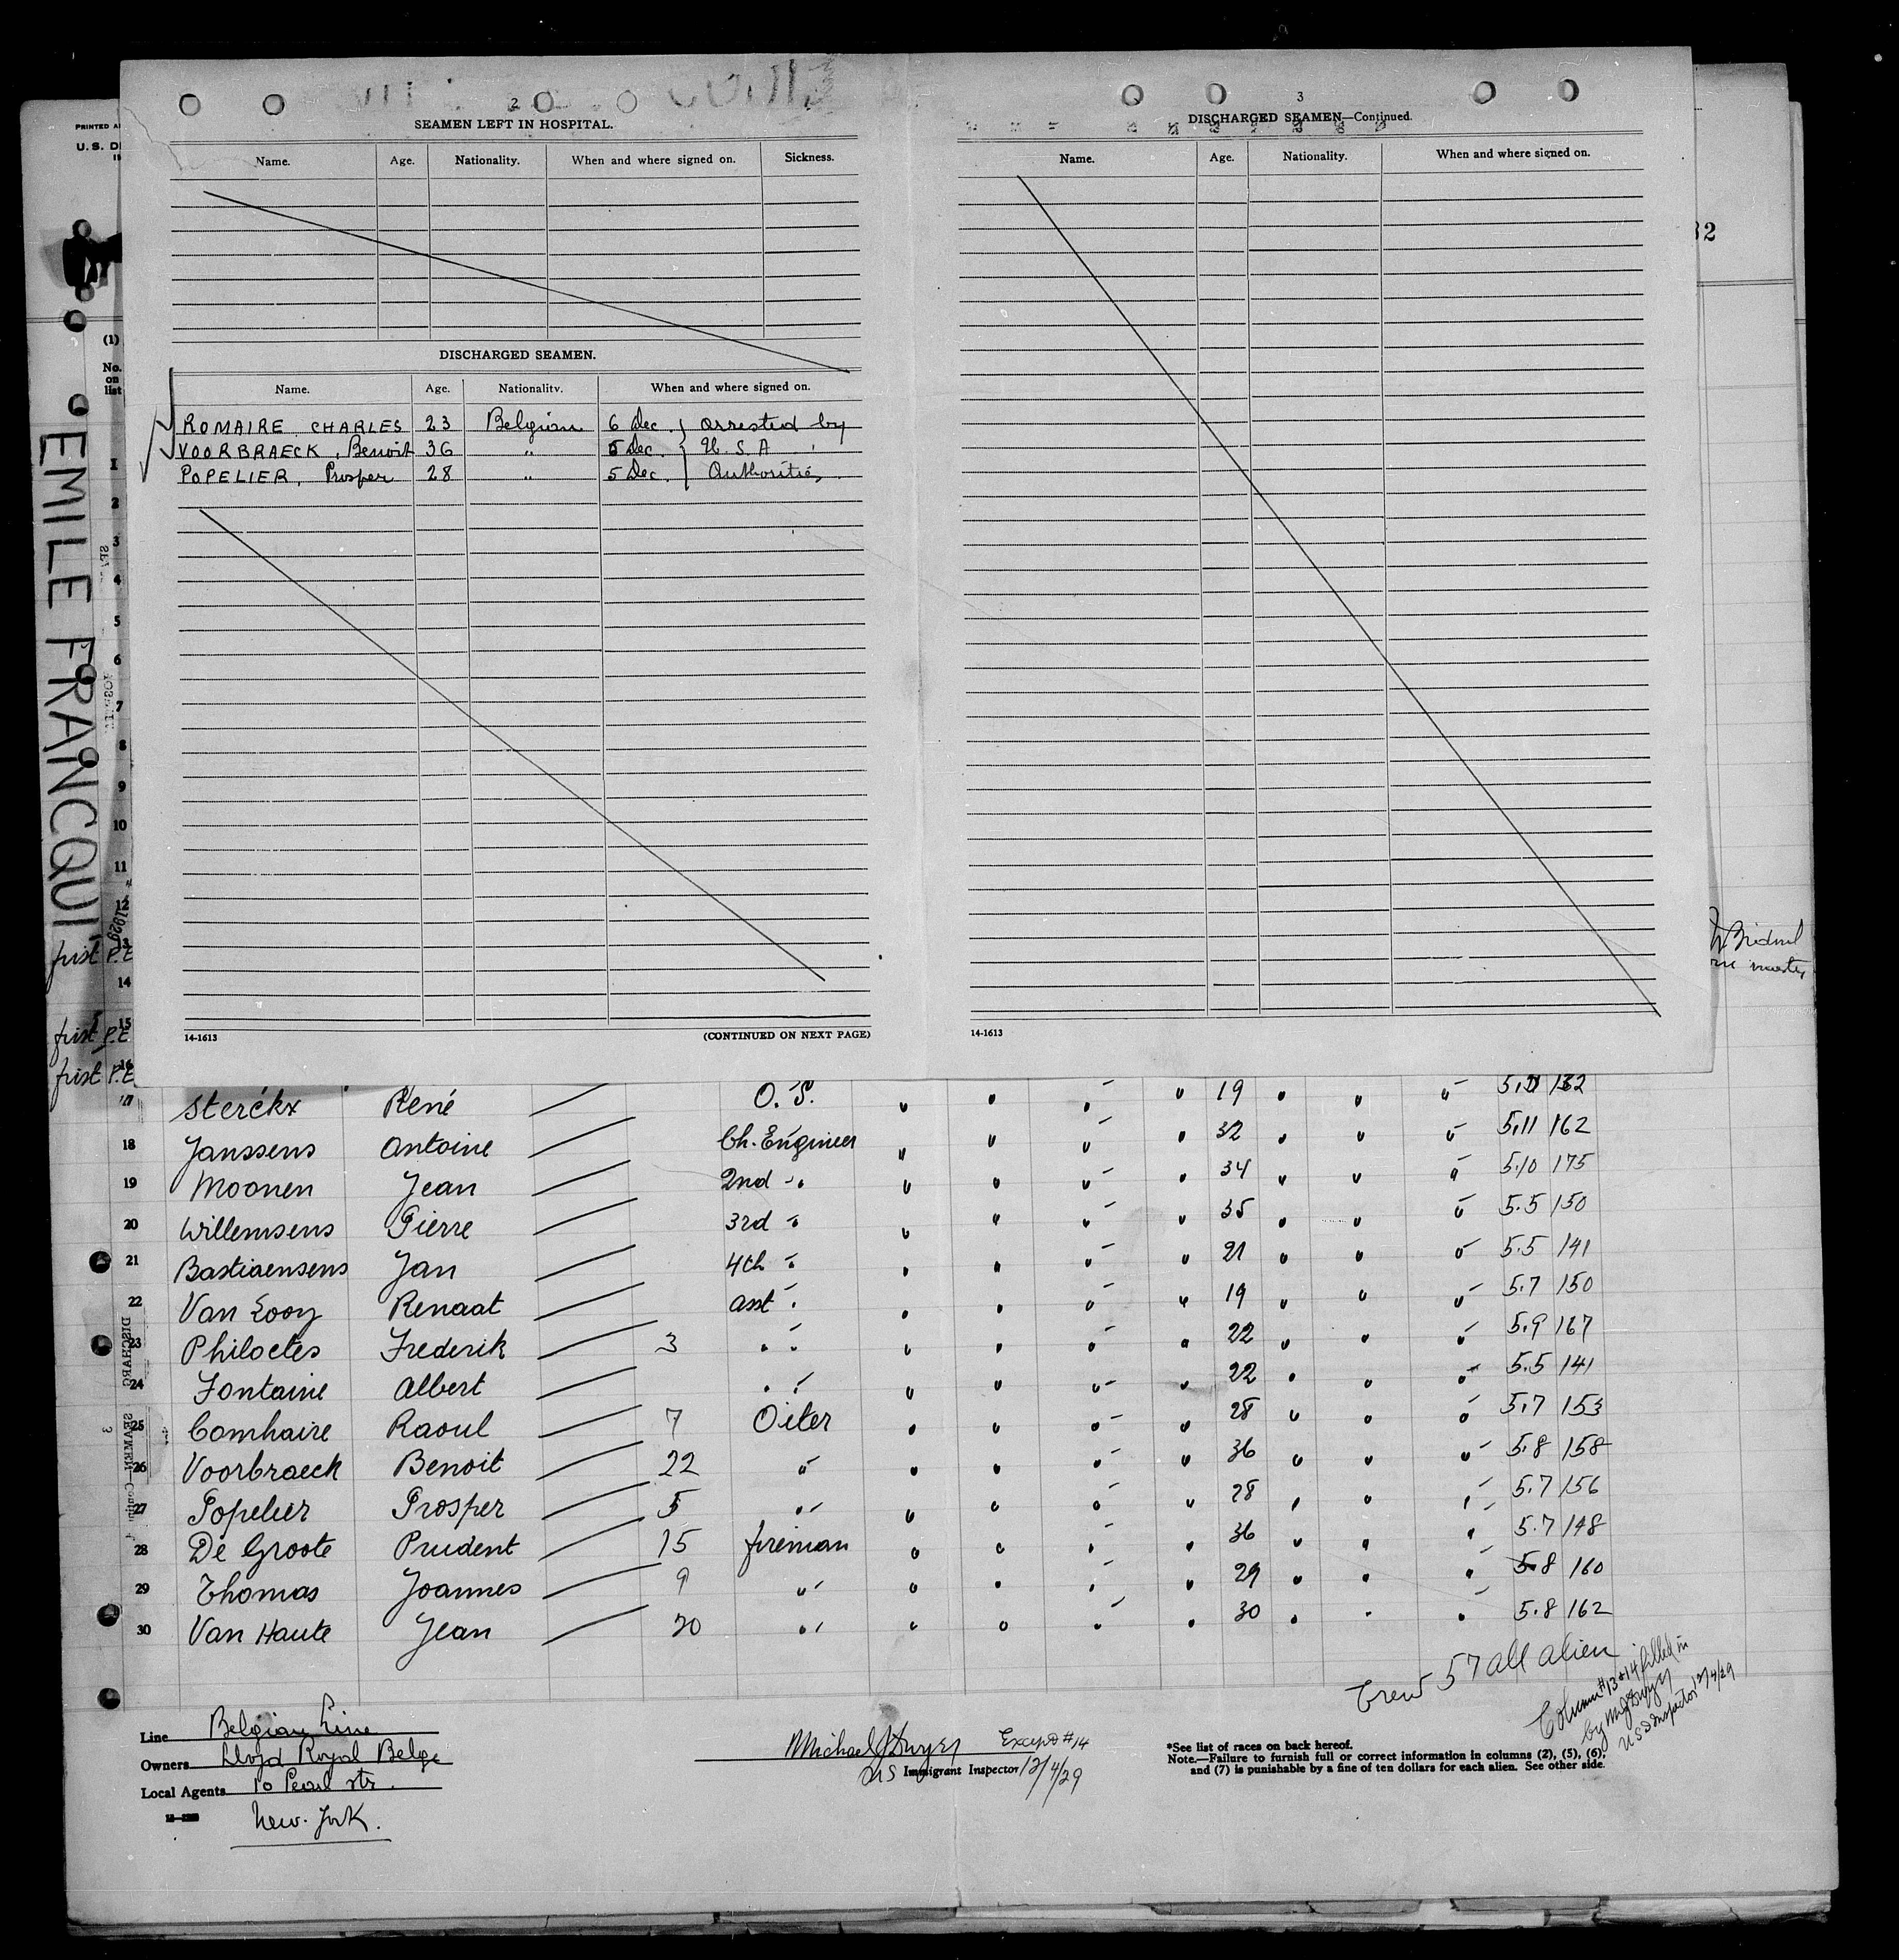 2
SEAMEN LEFT IN HOSPITAL.
Name. Age. Nationality. When and where signed on. Sickness.
DISCHARGED SEAMEN.
Name. Age. Nationality. When and where signed on.
ROMAIRE CHARLES 23 Belgian 6 Dec. } arrested by
VOORBRAECK, Benoit 36 " 5 Dec. } U.S.A
POPELIER, Prosper 28 " 5 Dec. } Authorities
14-1613 (CONTINUED ON NEXT PAGE)
3
DISCHARGED SEAMEN—Continued.
Name. Age. Nationality. When and where signed on.
14-1613
PRINTED
U. S. D
32
(1)
No. on list
EMILE FRANCQUI
1
2
3
4
5
6
7
8
9
10
11
12
13
14
15
16
1929
first P.E
first P.E
first P.E
17 Sterckx René O.S. " " " " 19 " " "
18 Janssens Antoine Ch. Engineer " " " " 32 " " " 5.11 162
19 Moonen Jean 2nd " " " " " 34 " " " 5.10 175
20 Willemsens Pierre 3rd " " " " " 35 " " " 5.5 150
21 Bastiaensens Jan 4th " " " " " 21 " " " 5.5 141
22 Van Looy Renaat asst " " " " " 19 " " " 5.7 150
23 Philoctes Frederik 3 " " " " " " 22 " " " 5.9 167
24 Fontaine Albert " " " " " " 22 " " " 5.5 141
25 Comhaire Raoul 7 Oiler " " " " 28 " " " 5.7 153
26 Voorbraeck Benoit 22 " " " " " 36 " " " 5.8 158
27 Popelier Prosper 5 " " " " " 28 " " " 5.7 156
28 De Groote Prudent 15 fireman " " " " 36 " " " 5.7 148
29 Thomas Joannes 9 " " " " " 29 " " " 5.8 160
30 Van Haute Jean 20 " " " " " 30 " " " 5.8 162
Crew 57 all alien
Column #13 & 14 filled in
by M J Dwyer
U S Inspector 12/4/29
Line Belgian Line
Owners Lloyd Royal Belge
Local Agents 10 Pearl str.
New-York.
Michael J Dwyer Except #14
US Immigrant Inspector 12/4/29
*See list of races on back hereof.
Note.—Failure to furnish full or correct information in columns (2), (5), (6),
and (7) is punishable by a fine of ten dollars for each alien. See other side.